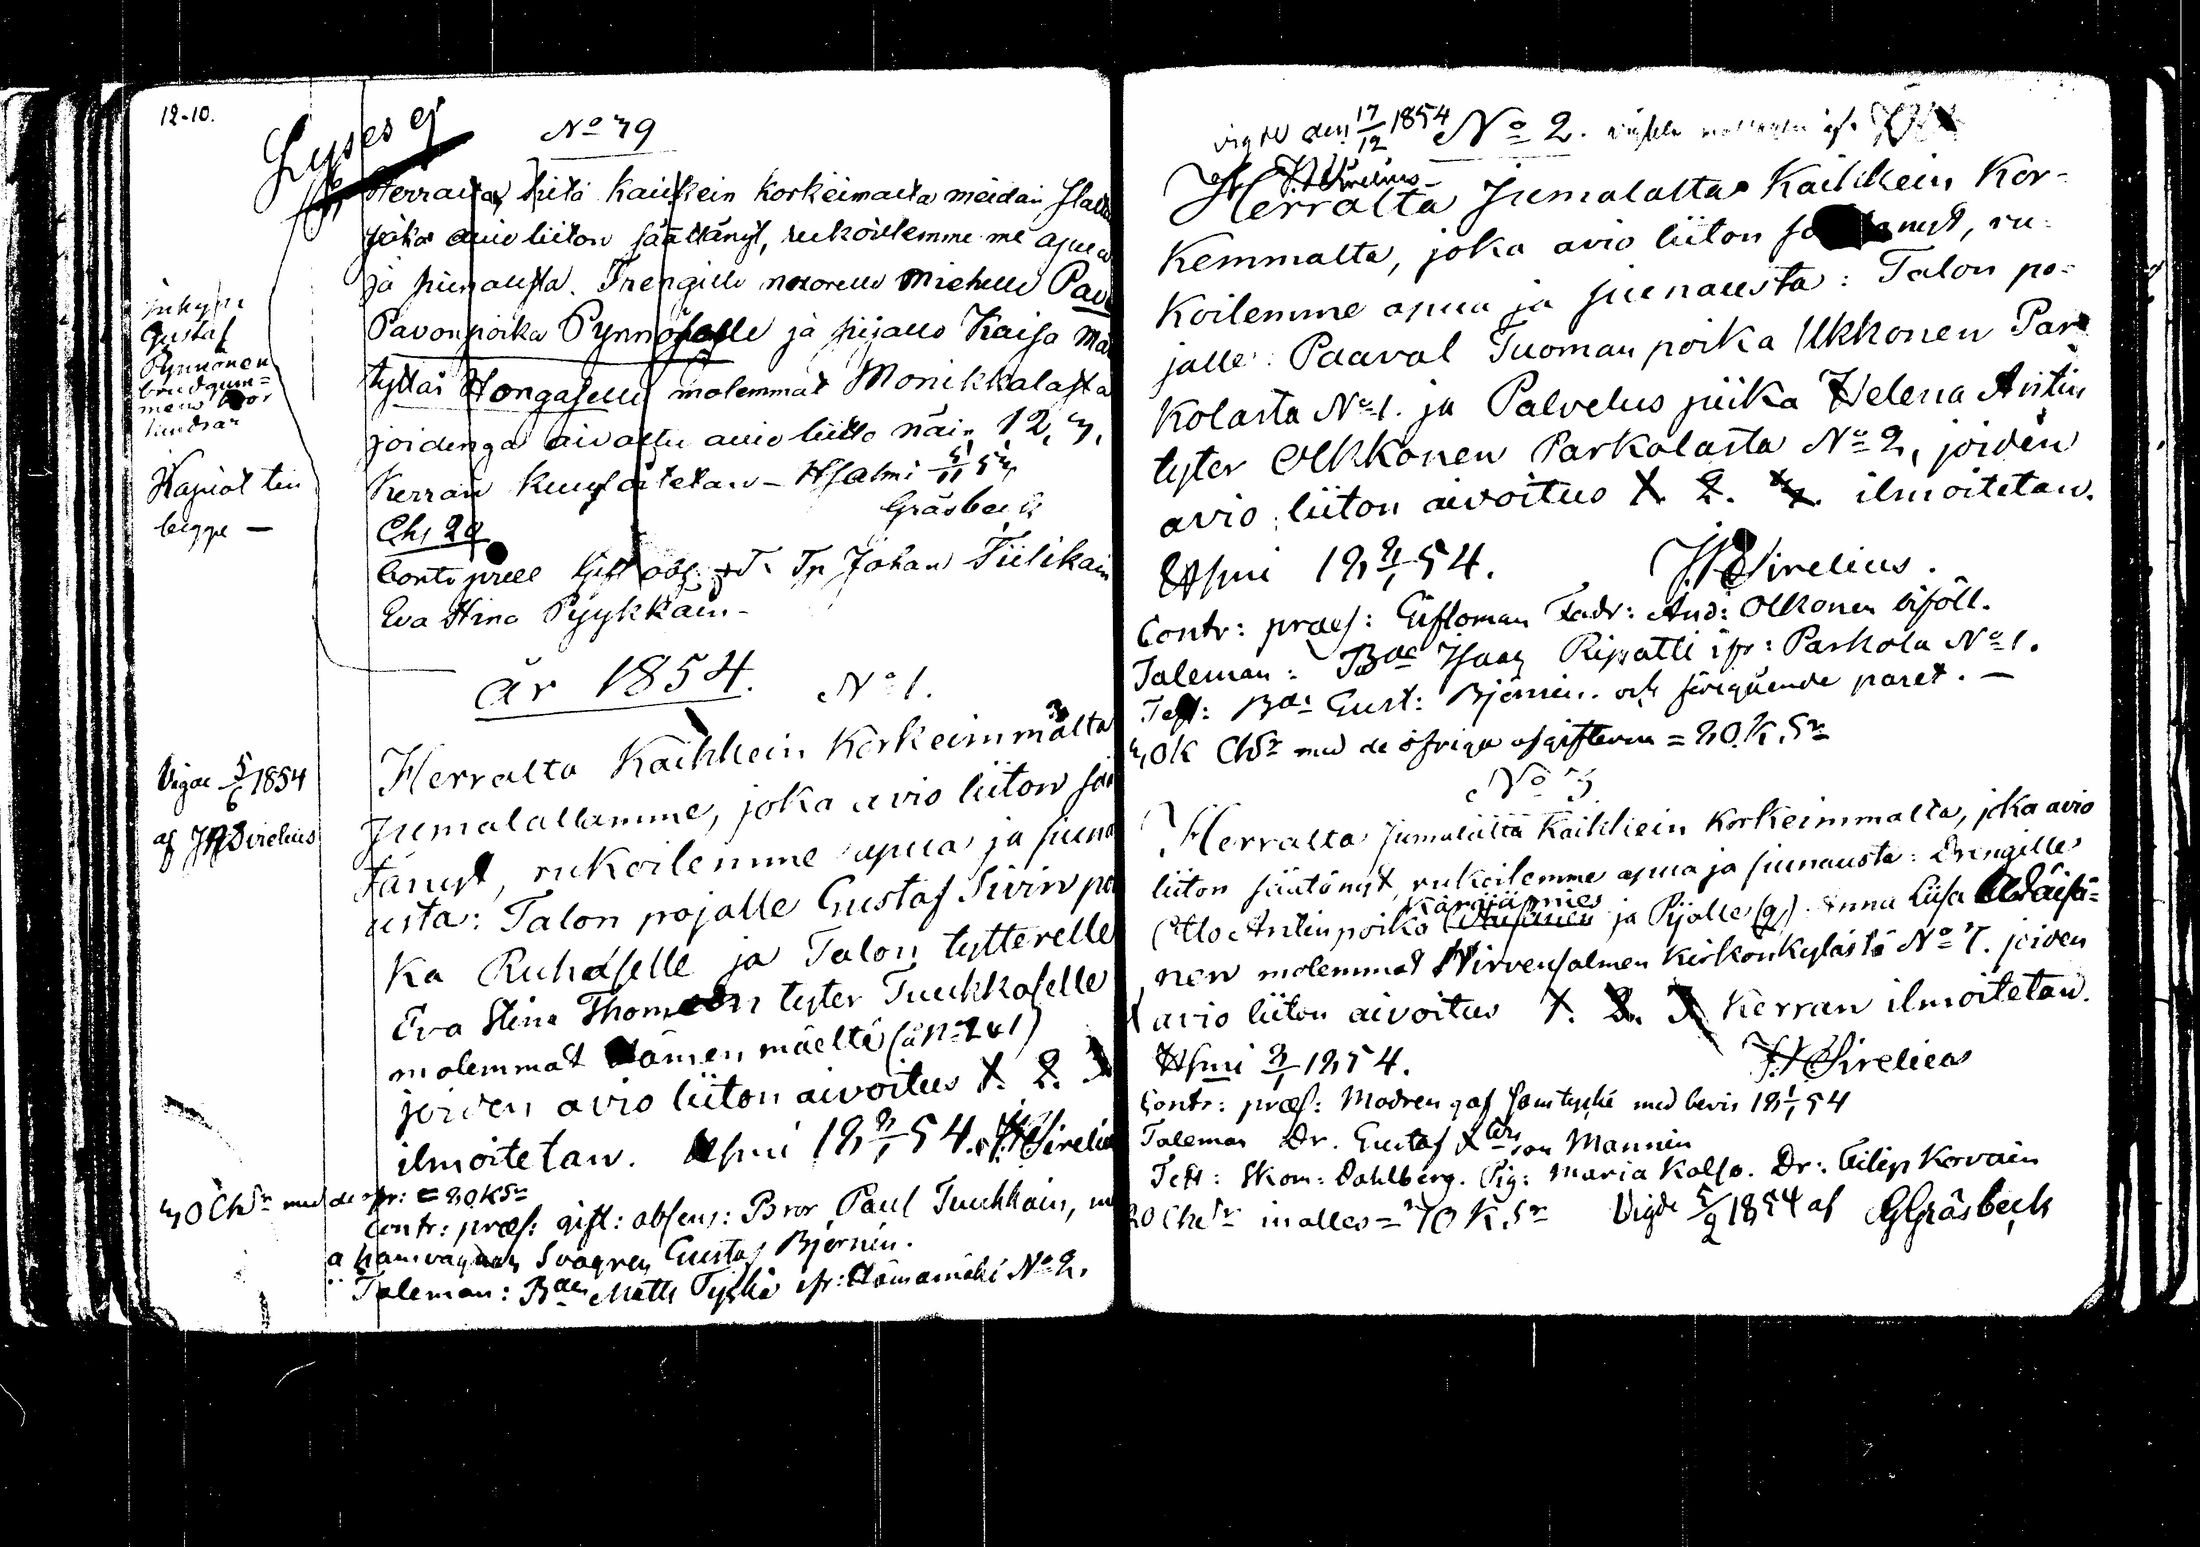 12-10.
Lyses ej
No 79
Herralta, sitä kaikkein korkeimalta meidän
joka avio liiton säätänyt, rukoilemme me apua
ja siunausta. Trengille nuorelle miehelle
Pavonpoika Pynnöselle ja piijalle Kaisa
tyttär Hongaselle molemmat Monikkalasta
joidenga aivottu avio liitto näin 1, 2, 3,
Kerran kuulutetan - Hsalmi
Gräsbeck
Johan Tiilikain
Eva Stina Pyykkäin -
Inhyse
Gustaf
Pynnönen
brudgum=
mens bror
hindrar
Kapiot ten
begge —
år 1854. No 1.
Vigde 5/6 1854
af JHSirelius
Herralta Kaikkein Korkeimmalta
Jumalallamme, joka avio liiton sää
tänyt, rukoilemme apua ja siuna
usta: Talon pojalle Gustaf Sivin poi
ka Ruhaselle ja Talon tytterelle
Eva Stina Thomaan tyter Tuukkaselle
molemmat Hämenmäeltä (å No 2 & 1)
joiden avio liiton aivoitus 1. 2. 3
ilmoitetan. Hsmi 18 2/1 54. JHSirelius
contr: præs: gift: absens: Bror Paul Tuukkain,
Svagren Gustaf Björnin.
Taleman: Matts Tyskä ifr: Hämämäki No 2.
vigde den 17/12 1854 No 2.
JHSirelius
Herralta Jumalalta Kaikkein Kor-
kemmalta, joka avio liiton ru-
koilemme apua ja siunausta: Talon po-
jalle: Paaval Tuoman poika Ukkonen Par
kolasta No 1. ja Palvelus piika Helena Antin
tyter Olkkonen Parkolasta No 2, joiden
avio liiton aivoitus 1. 2. ilmoitetan.
Hsmi 18 2/1 54. JHSirelius.
Contr: præs: Giftoman Fadr: And: Olkonen biföll.
Taleman: Isaac Ripatti ifr: Parkola No 1.
Test: Gust: Björnin. och föregående paret. —
med de öfriga afgifterna = 20 K. Sr
No 3
Herralta Jumalalta Kaikkein Korkeimmalta, joka avio
liiton säätänyt, rukoilemme apua ja siunausta: Drengille
Käräjämies
Otto Antinpoika ja Pijalle (g). Anna Liisa Wäisä=
nen molemmat Hirvensalmen Kirkonkylästä No 7. joiden
avio liiton aivoitus 1. 2. 3 Kerran ilmoitetan.
Hsmi 3/1 1854. JHSirelius
Contr: præs: Modren gaf samtycke med bevis 18 1/1 54
Taleman Dr. Gustaf Mannin
Test: Skom: Dahlberg. Pig: Maria Kolso. Dr: Filip Korvain
inalles = 70 K. Sr Vigde 5/2 1854 af GGräsbeck